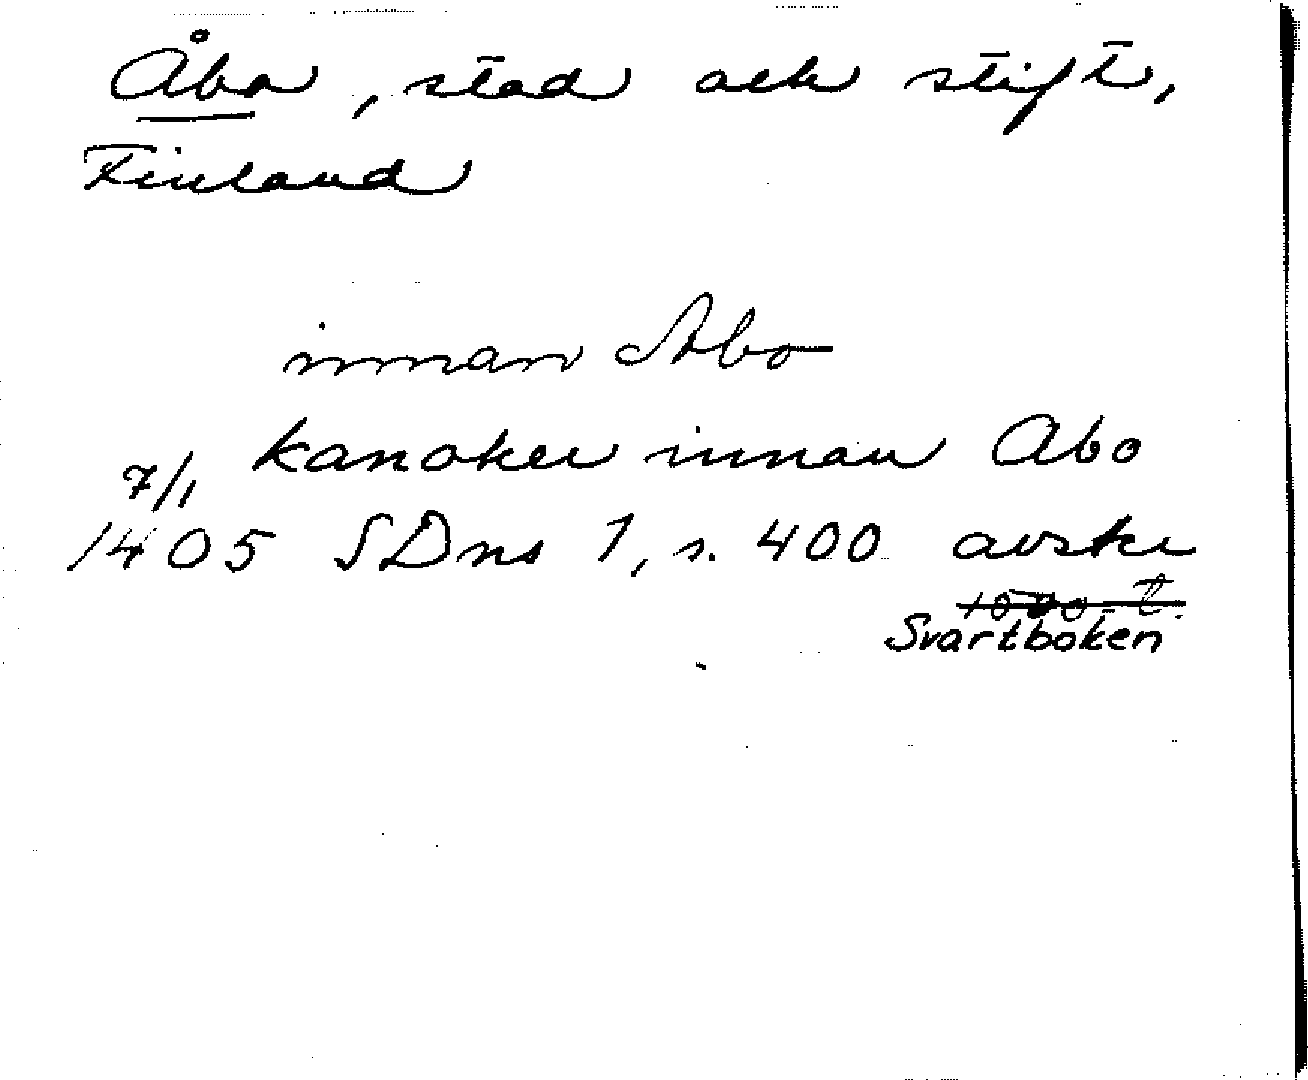 Åbo, stad och stift,
Finland
innan Abo
kanoker innan Abo
7/1
1405 SDns 1, s. 400 avskr
Svartboken